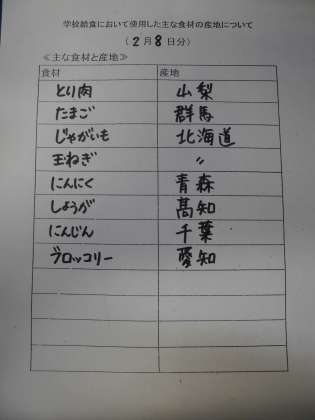 学校給食において使用した主な食材の産地について
（2月8日分）
≪主な食材と産地≫
食材 産地
とり肉 山梨
たまご 群馬
じゃがいも 北海道
玉ねぎ 〃
にんにく 青森
しょうが 高知
にんじん 千葉
ブロッコリー 愛知